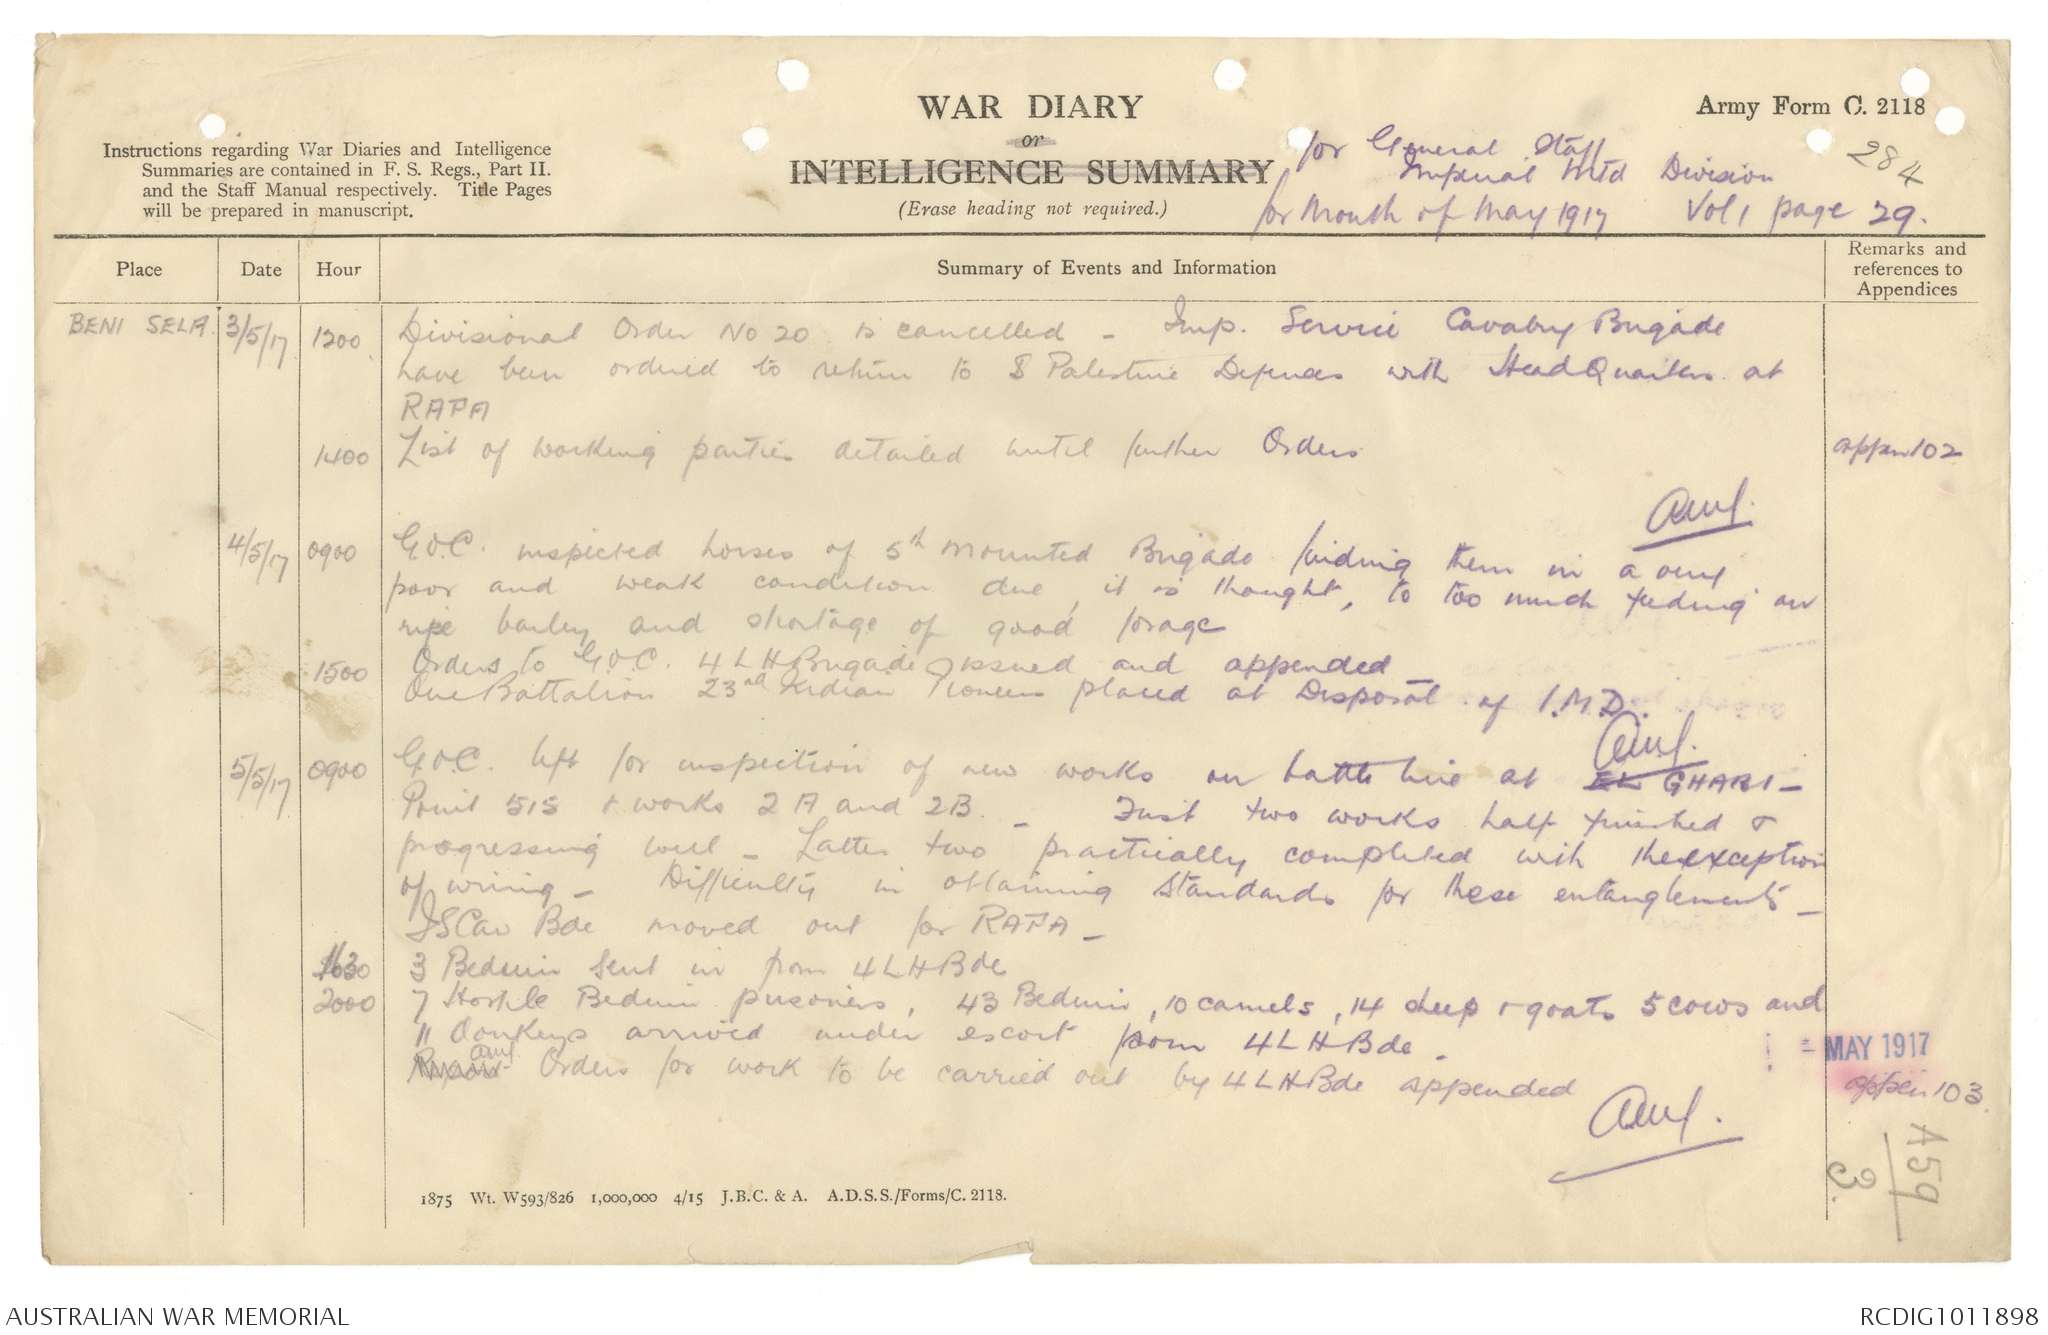 WAR DIARY
or
INTELLIGENCE SUMMARY
(Erase heading not required.)
Army Form C. 2118
Instructions regarding War Diaries and Intelligence
Summaries are contained in F. S. Regs., Part II.
and the Staff Manual respectively. Title Pages
will be prepared in manuscript.
for General Staff
Imperial Mtd Division
284
for Month of May 1917 Vol 1 page 29.
Place Date Hour Summary of Events and Information Remarks and references to Appendices
BENI SELA 3/5/17 1200 Divisional Order No 20 is cancelled - Imp. Service Cavalry Brigade
have been ordered to return to S Palestine Defences with HeadQuarters at
RAFA
1400 List of working parties detailed until further Orders appen 102
4/5/17 0900 G.O.C. inspected horses of 5th Mounted Brigade finding them in a very
poor and weak condition due, it is thought, to too much feeding on
ripe barley and shortage of good forage
1500 Orders to G.O.C. 4 L H Brigade issued and appended
One Battalion 23rd Indian Pioneers placed at Disposal of I.M.D.
5/5/17 0900 G.O.C. left for inspection of new works on battle line at EL GHABI -
Point 515 + works 2A and 2B. - First two works half finished &
progressing well - Latter two practically completed with the exception
of wiring - Difficulty in obtaining standards for these entanglements -
ISCav Bde moved out for RAFA -
1630 3 Beduin sent in from 4 L H Bde
2000 7 Hostile Beduin prisoners, 43 Beduin, 10 camels, 14 sheep + goats 5 cows and
11 Donkeys arrived under escort from 4 L H Bde -
Orders for work to be carried out by 4 L H Bde appended
MAY 1917
appen 103.
A59
3.
1875 Wt. W593/826 1,000,000 4/15 J.B.C. & A. A.D.S.S./Forms/C. 2118.
AUSTRALIAN WAR MEMORIAL
RCDIG1011898